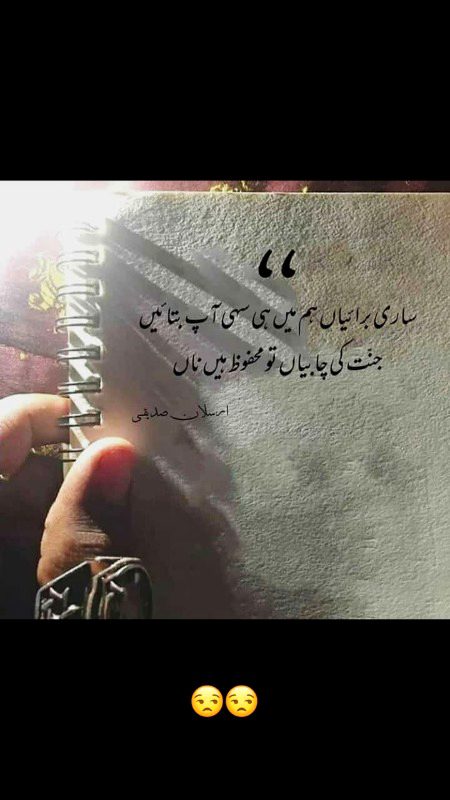 “
ساری برائیاں ہم میں ہی سہی آپ بتائیں
جنت کی چابیاں تو محفوظ ہیں ناں
ارسلان صدیقی
😒😒